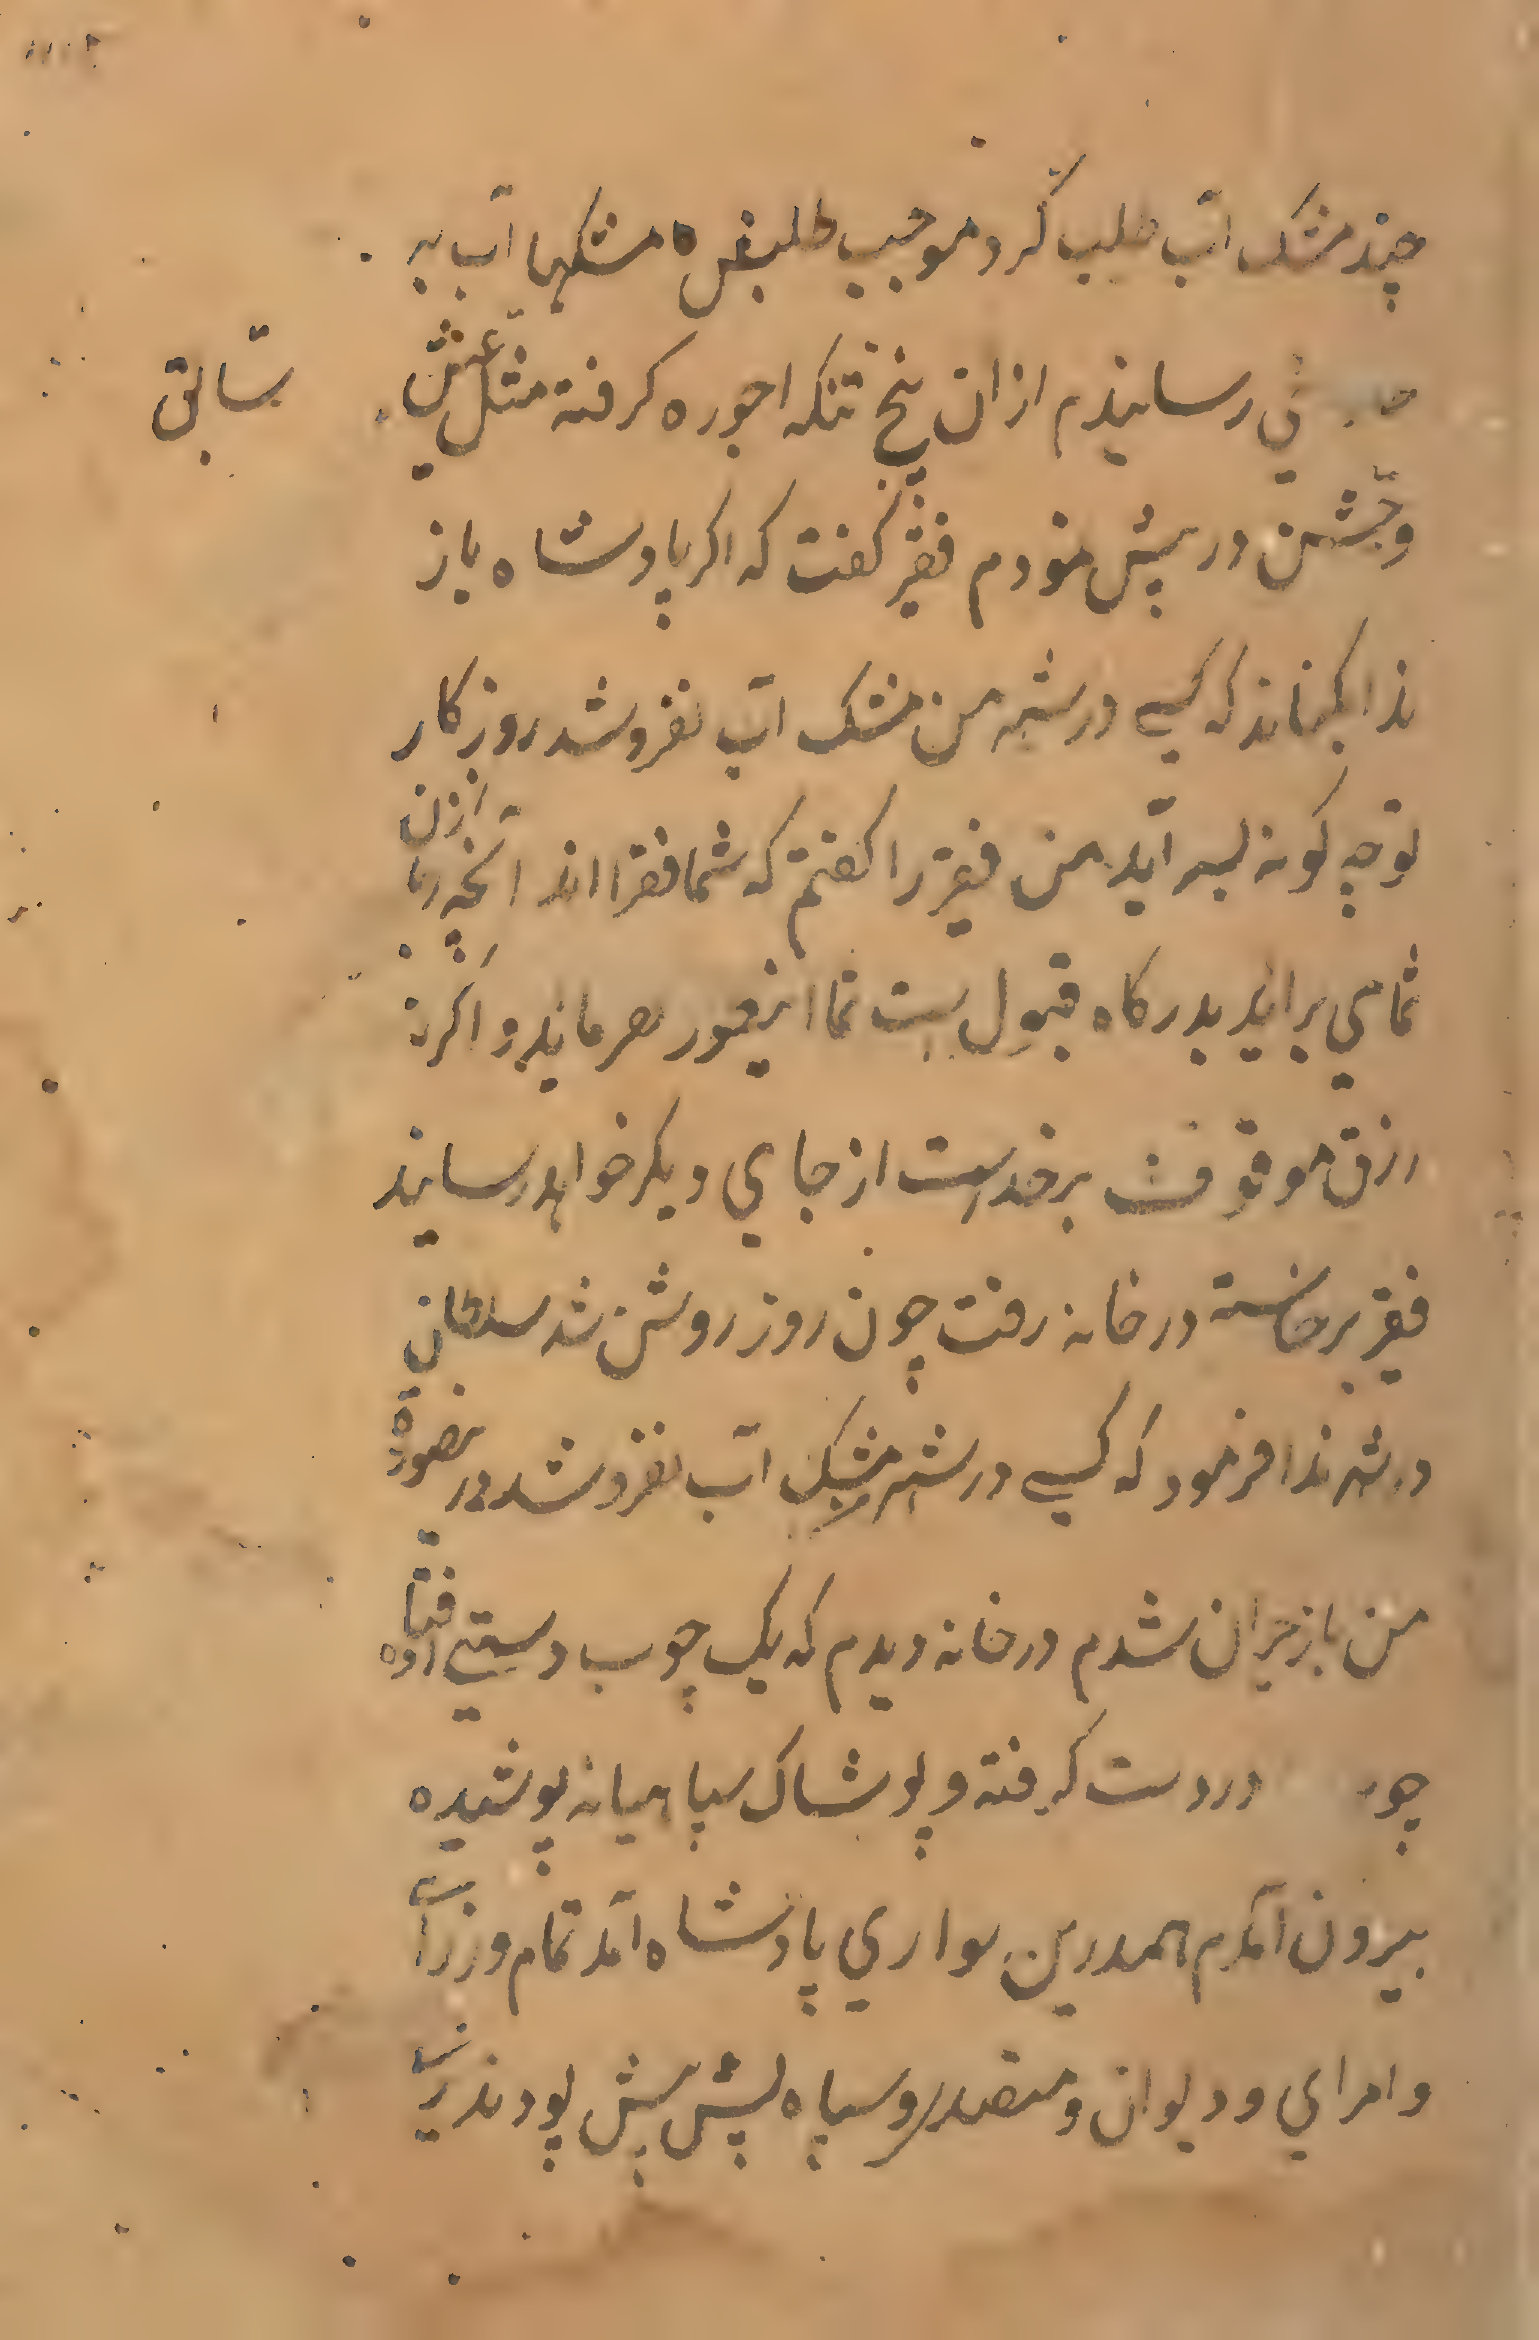 چند مشک آب طلب کرد موجب طلبش ه مشکها آب به
رسانیدم ازان پنج تنکه اجوره کرفته مثل عیش سابق
و جشن در پیش نمودم فقیر کفت که اکر پادشاه باز
ندا کناند که کسی در شهر من مشک آب نفروشد روزکار
تو چه کونه بسر آید من فقیر را کفتم که شما فقرا اند آنچه از زبان
شما می براید بدرکاه قبول ست نفرمایند و اکر نه
رزق موقوف بر خداست از جای دیکر خواهد رسانید
فقیر برخاسته در خانه رفت چون روز روشن شد سلطان
در شهر ندا فرمود که کسی در شهر مشک آب نفروشد درینصورة
من باز حیران شدم در خانه دیدم که یک چوب دستی افتاده
در دست کرفته و پوشاک سپاهیانه پوشیده
بیرون آمدم همدرین سواری پادشاه آمد تمام وزرای
و امرای و دیوان و متصدی و سپاه پیش پیش بودند